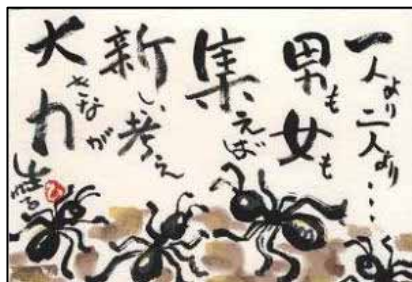 一人より二人より…
男も女も
集えば
新しい考え
大きな力が
生まれる